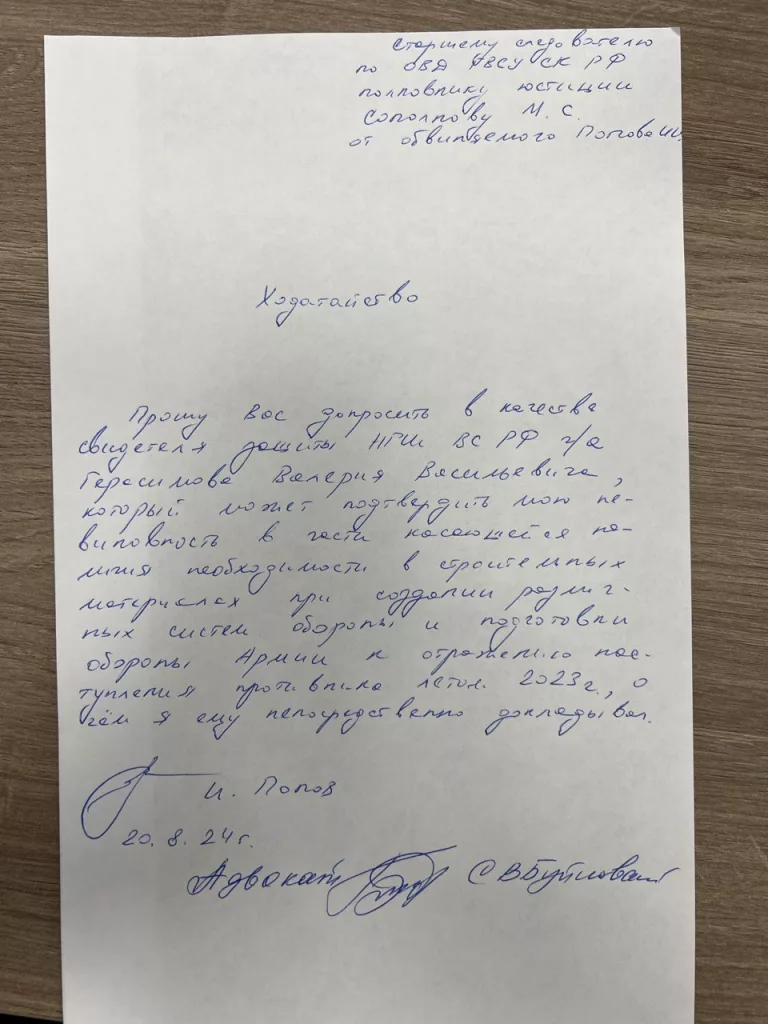 Старшему следователю
по ОВД ГВСУ СК РФ
полковнику юстиции
М. С.
от обвиняемого Попова И.И.
Ходатайство
Прошу Вас допросить в качестве
свидетеля защиты НГШ ВС РФ г/а
Герасимова Валерия Васильевича,
который может подтвердить мою не-
виновность в части касающейся на-
личия необходимости в строительных
материалах при создании различ-
ных систем обороны и подготовки
обороны Армии к отражению нас-
тупления противника летом 2023г., о
чём я ему непосредственно докладывал.
И. Попов
20.8.24г.
Адвокат С В Буйновский